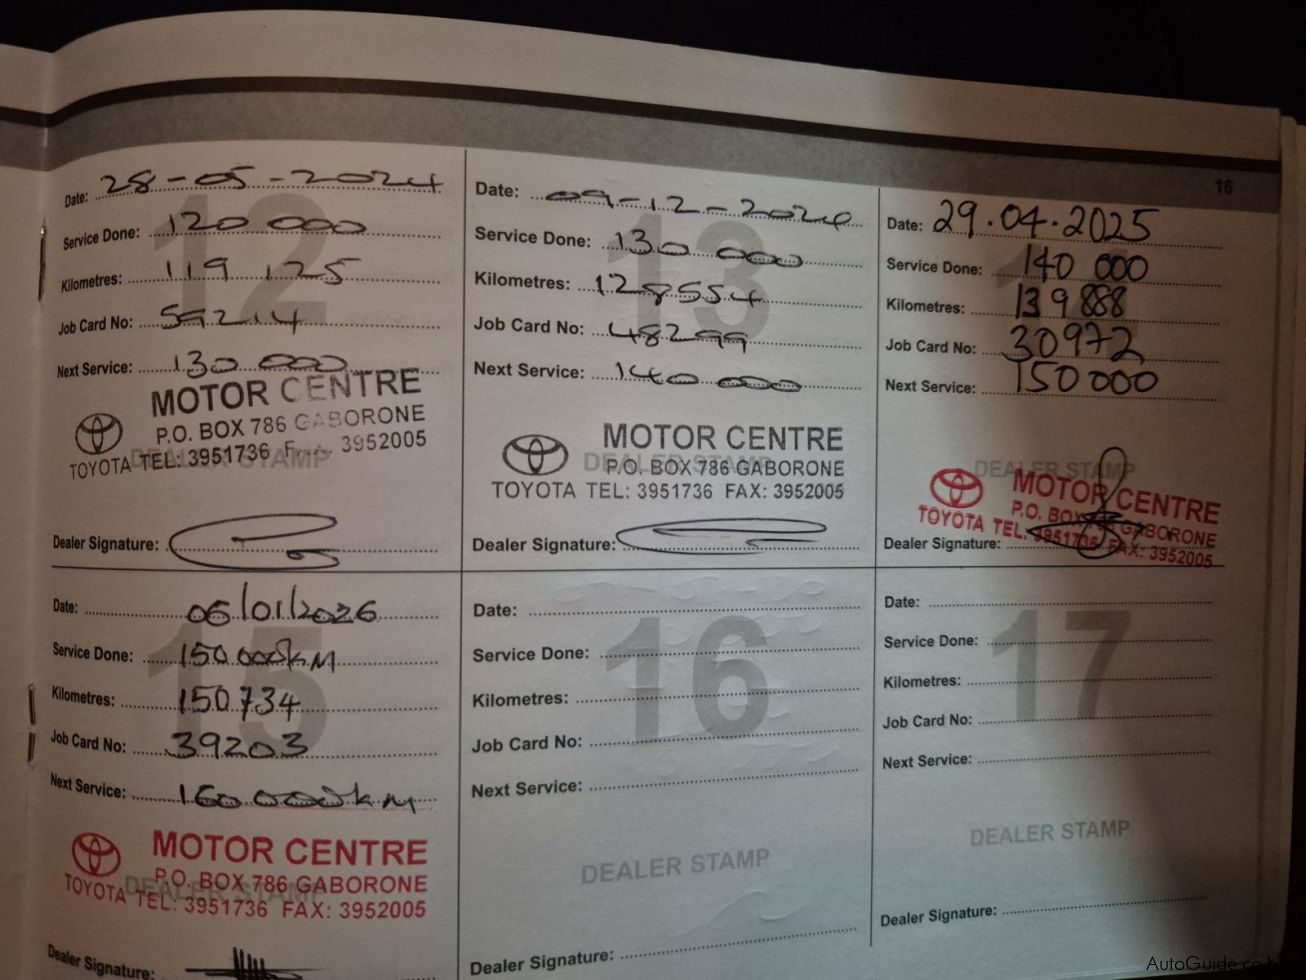 16
12
Date: 28-05-2024
Service Done: 120 000
Kilometres: 119 125
Job Card No: 59214
Next Service: 130 000
DEALER STAMP
MOTOR CENTRE
P.O. BOX 786 GABORONE
TOYOTA TEL: 3951736 3952005
Dealer Signature:
13
Date: 09-12-2024
Service Done: 130 000
Kilometres: 128554
Job Card No: 48299
Next Service: 140 000
DEALER STAMP
MOTOR CENTRE
P.O. BOX 786 GABORONE
TOYOTA TEL: 3951736 FAX: 3952005
Dealer Signature:
Date: 29.04.2025
Service Done: 140 000
Kilometres: 139888
Job Card No: 30972
Next Service: 150 000
DEALER STAMP
MOTOR CENTRE
P.O. BOX 786 GABORONE
TOYOTA TEL: 3951736 FAX: 3952005
Dealer Signature:
15
Date: 06/01/2026
Service Done: 150.000kM
Kilometres: 150.734
Job Card No: 39203
Next Service: 160.000kM
DEALER STAMP
MOTOR CENTRE
P.O. BOX 786 GABORONE
TOYOTA TEL: 3951736 FAX: 3952005
Dealer Signature:
16
Date:
Service Done:
Kilometres:
Job Card No:
Next Service:
DEALER STAMP
Dealer Signature:
17
Date:
Service Done:
Kilometres:
Job Card No:
Next Service:
DEALER STAMP
Dealer Signature:
AutoGuide.co.b